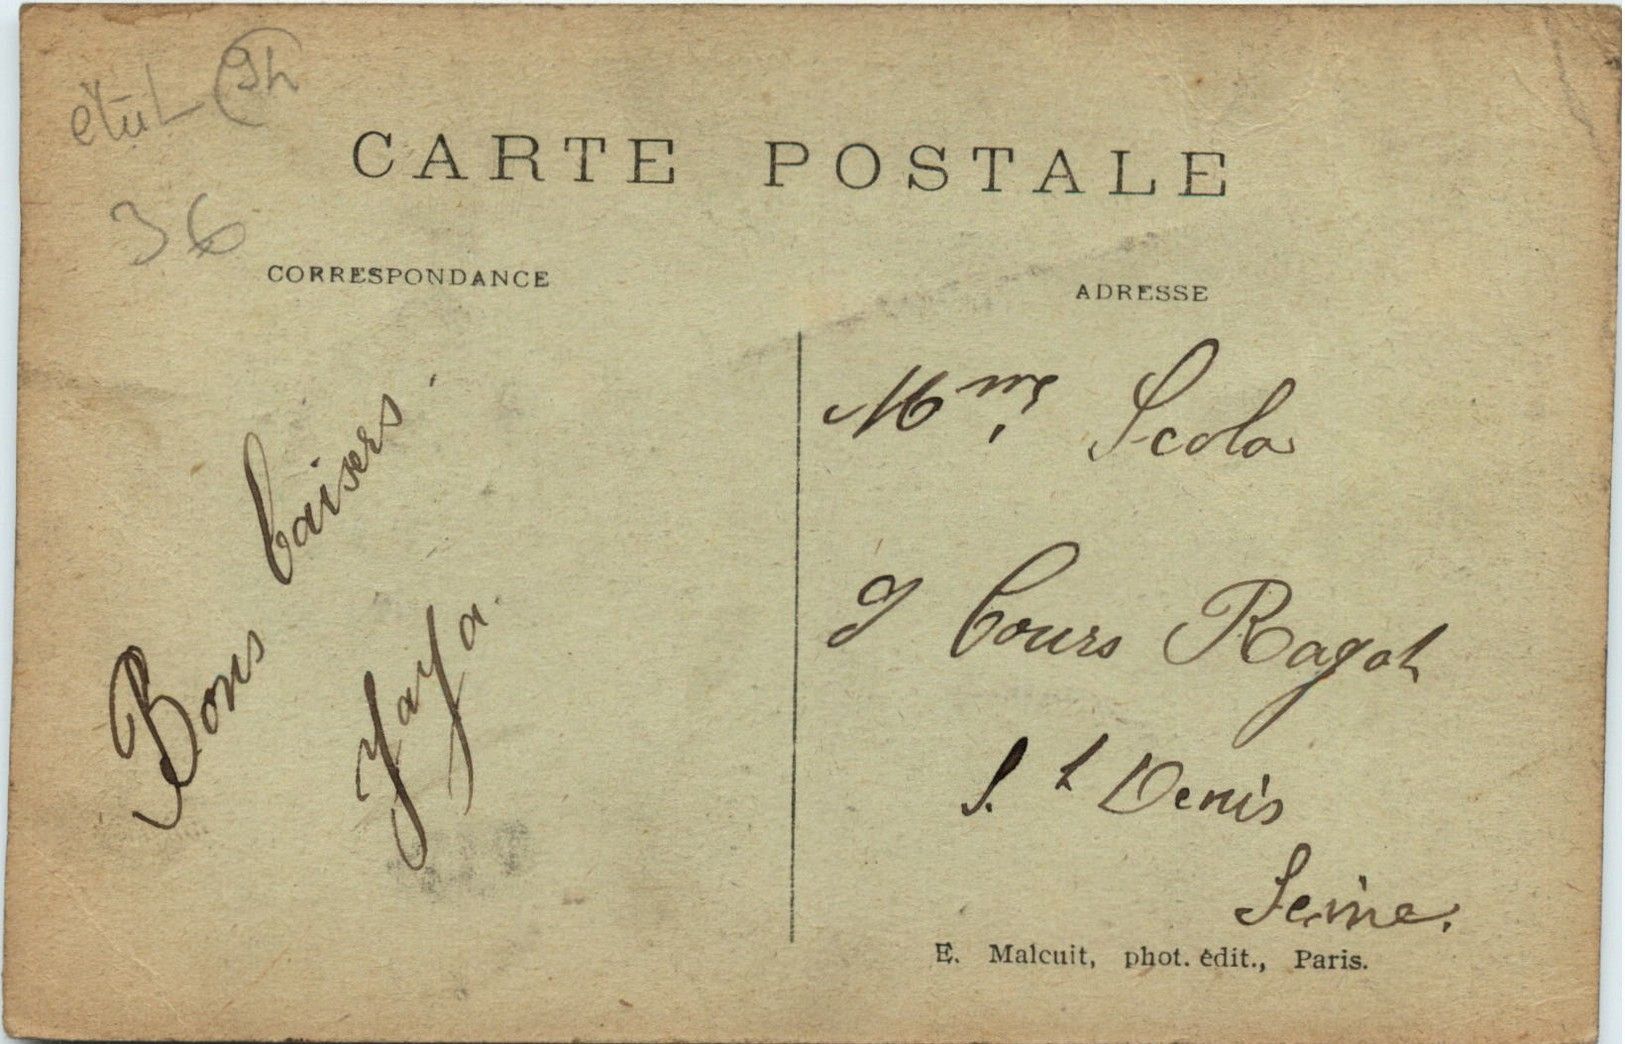 36
CARTE POSTALE
CORRESPONDANCE
ADRESSE
Bons baisers.
Yaya.
Mme Scola
9 Cours Ragot
St Denis
Seine.
E. Malcuit, phot. édit., Paris.